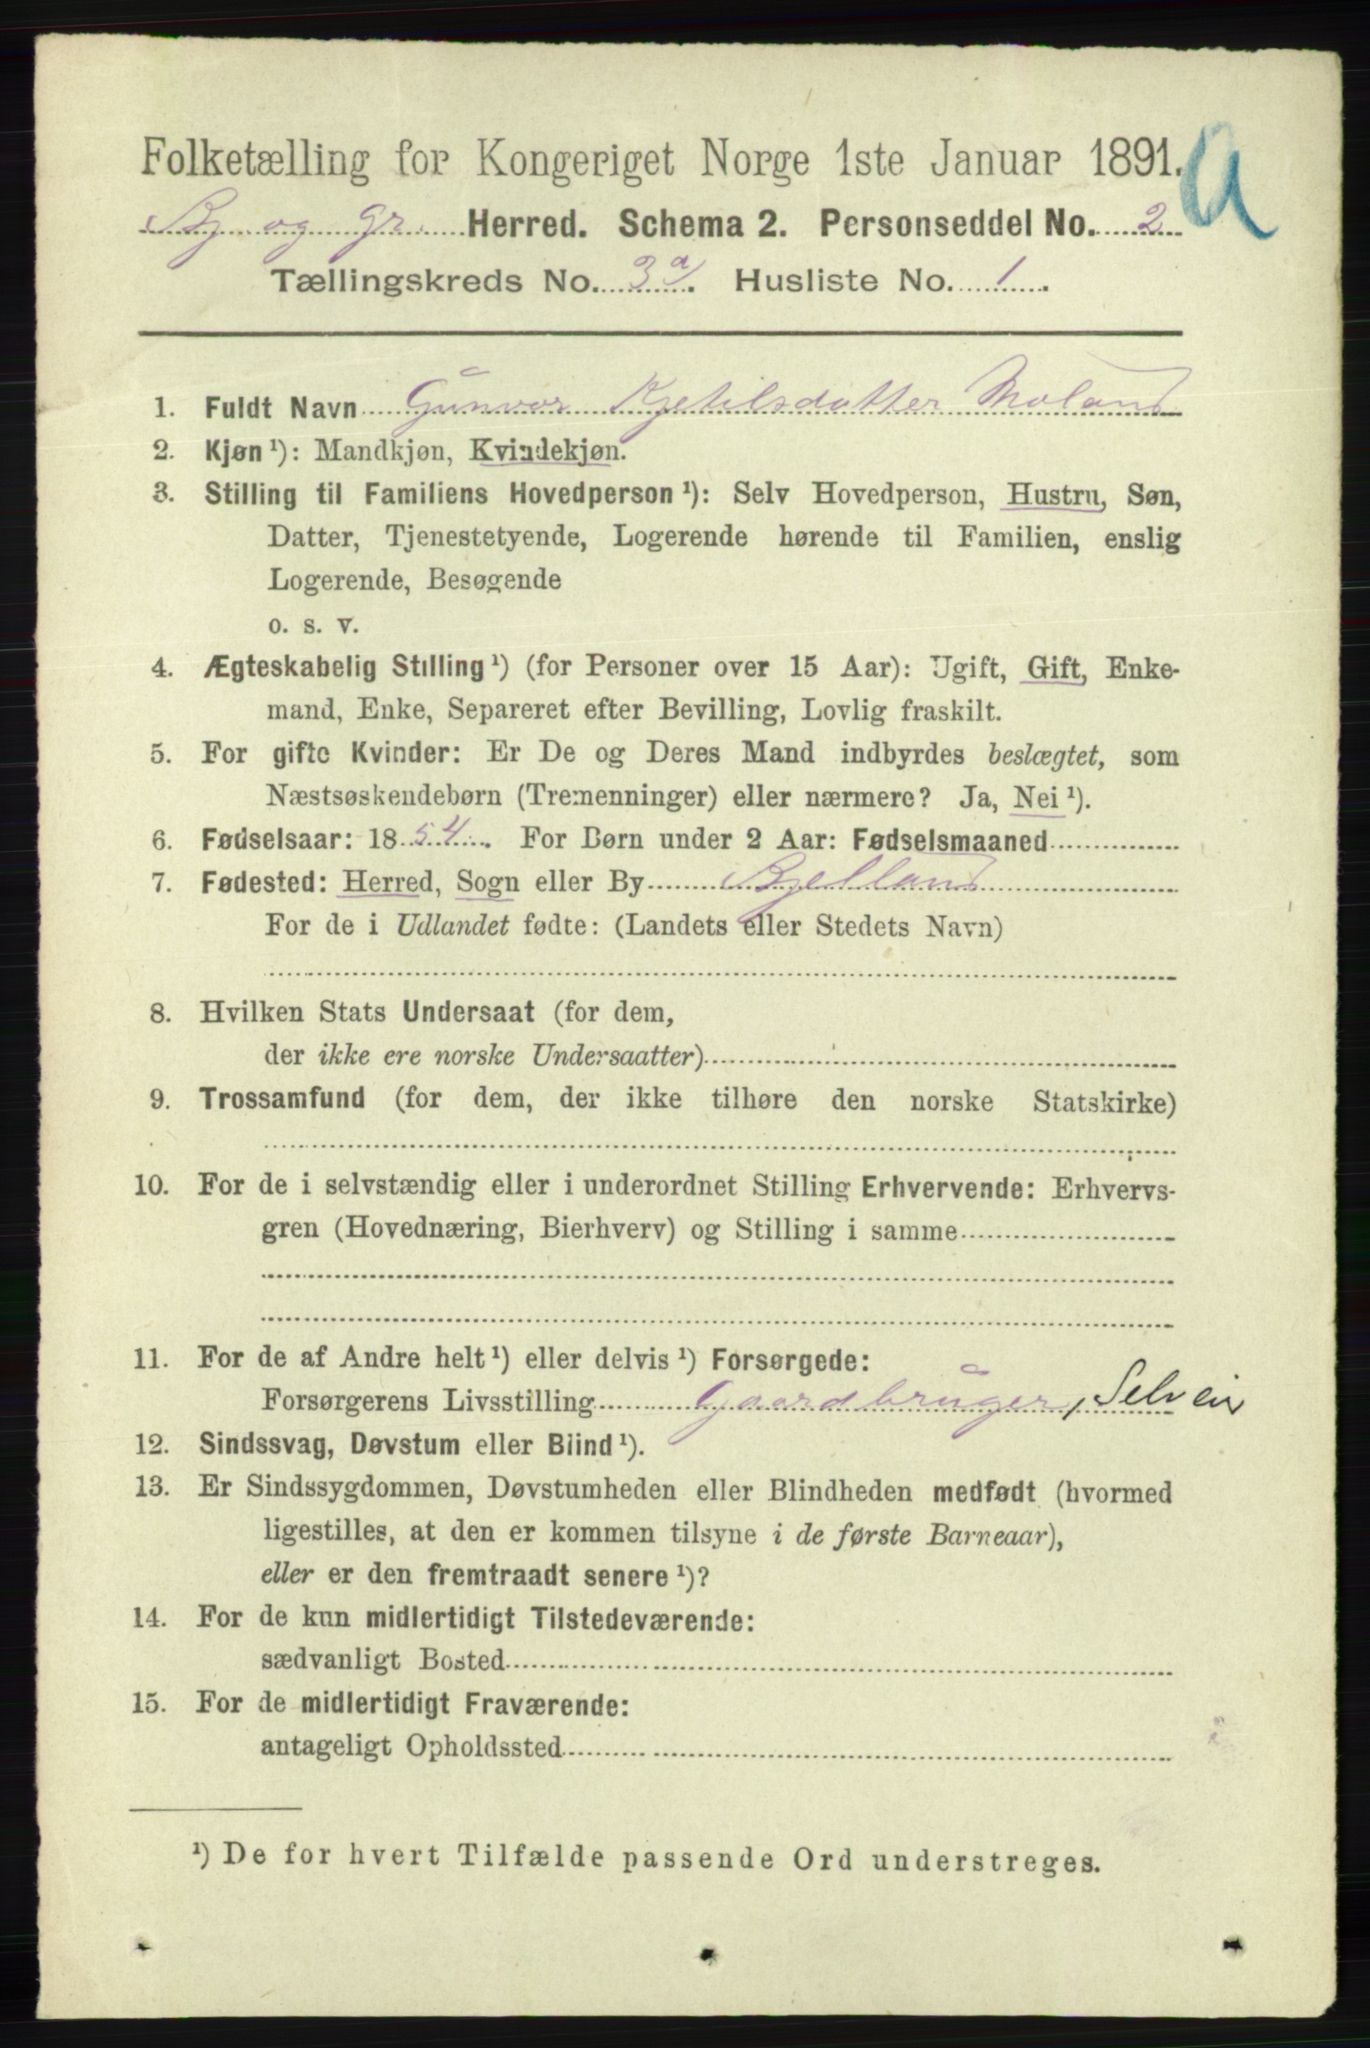 Folketælling for Kongeriget Norge 1ste Januar 1891. a
Bj og Gr. Herred. Schema 2. Personseddel No. 2
Tællingskreds No. 3 a/. Husliste No. 1.
1. Fuldt Navn Gunvor Kjetilsdatter Moland
2. Kjøn ¹): Mandkjøn, Kvindekjøn.
3. Stilling til Familiens Hovedperson ¹): Selv Hovedperson, Hustru, Søn,
Datter, Tjenestetyende, Logerende hørende til Familien, enslig
Logerende, Besøgende
o. s. v.
4. Ægteskabelig Stilling ¹) (for Personer over 15 Aar): Ugift, Gift, Enke-
mand, Enke, Separeret efter Bevilling, Lovlig fraskilt.
5. For gifte Kvinder: Er De og Deres Mand indbyrdes beslægtet, som
Næstsøskendebørn (Tremenninger) eller nærmere? Ja, Nei ¹).
6. Fødselsaar: 1854. For Børn under 2 Aar: Fødselsmaaned
7. Fødested: Herred, Sogn eller By Bjelland
For de i Udlandet fødte: (Landets eller Stedets Navn)
8. Hvilken Stats Undersaat (for dem,
der ikke ere norske Undersaatter)
9. Trossamfund (for dem, der ikke tilhøre den norske Statskirke)
10. For de i selvstændig eller i underordnet Stilling Erhvervende: Erhvervs-
gren (Hovednæring, Bierhverv) og Stilling i samme
11. For de af Andre helt ¹) eller delvis ¹) Forsørgede:
Forsørgerens Livsstilling Gaardbruger, Selveier
12. Sindssvag, Døvstum eller Blind ¹).
13. Er Sindssygdommen, Døvstumheden eller Blindheden medfødt (hvormed
ligestilles, at den er kommen tilsyne i de første Barneaar),
eller er den fremtraadt senere ¹)?
14. For de kun midlertidigt Tilstedeværende:
sædvanligt Bosted
15. For de midlertidigt Fraværende:
antageligt Opholdssted
¹) De for hvert Tilfælde passende Ord understreges.